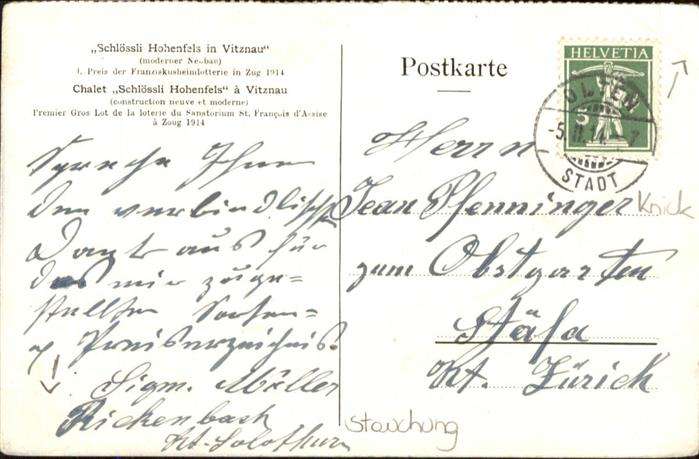 „Schlössli Hohenfels in Vitznau"
(moderner Neubau)
1. Preis der Franziskusheimlotterie in Zug 1914
Chalet „Schlössli Hohenfels" à Vitznau
(construction neuve et moderne)
Premier Gros Lot de la loterie du Sanatorium St. François d'Assise
à Zoug 1914
Spreche Ihnen
den verbindlichst
Dank aus für
das mir zuge=
stellten Sorten=
& Preisverzeichnis.
Sigm. Müller
Rickenbach
Kt. Solothurn
Postkarte
HELVETIA
5
OLTEN
-5.II.14.-7
STADT
Herrn
Jean Pfenninger
zum Obstgarten
Stäfa
Kt. Zürich
Knick
Stauchung